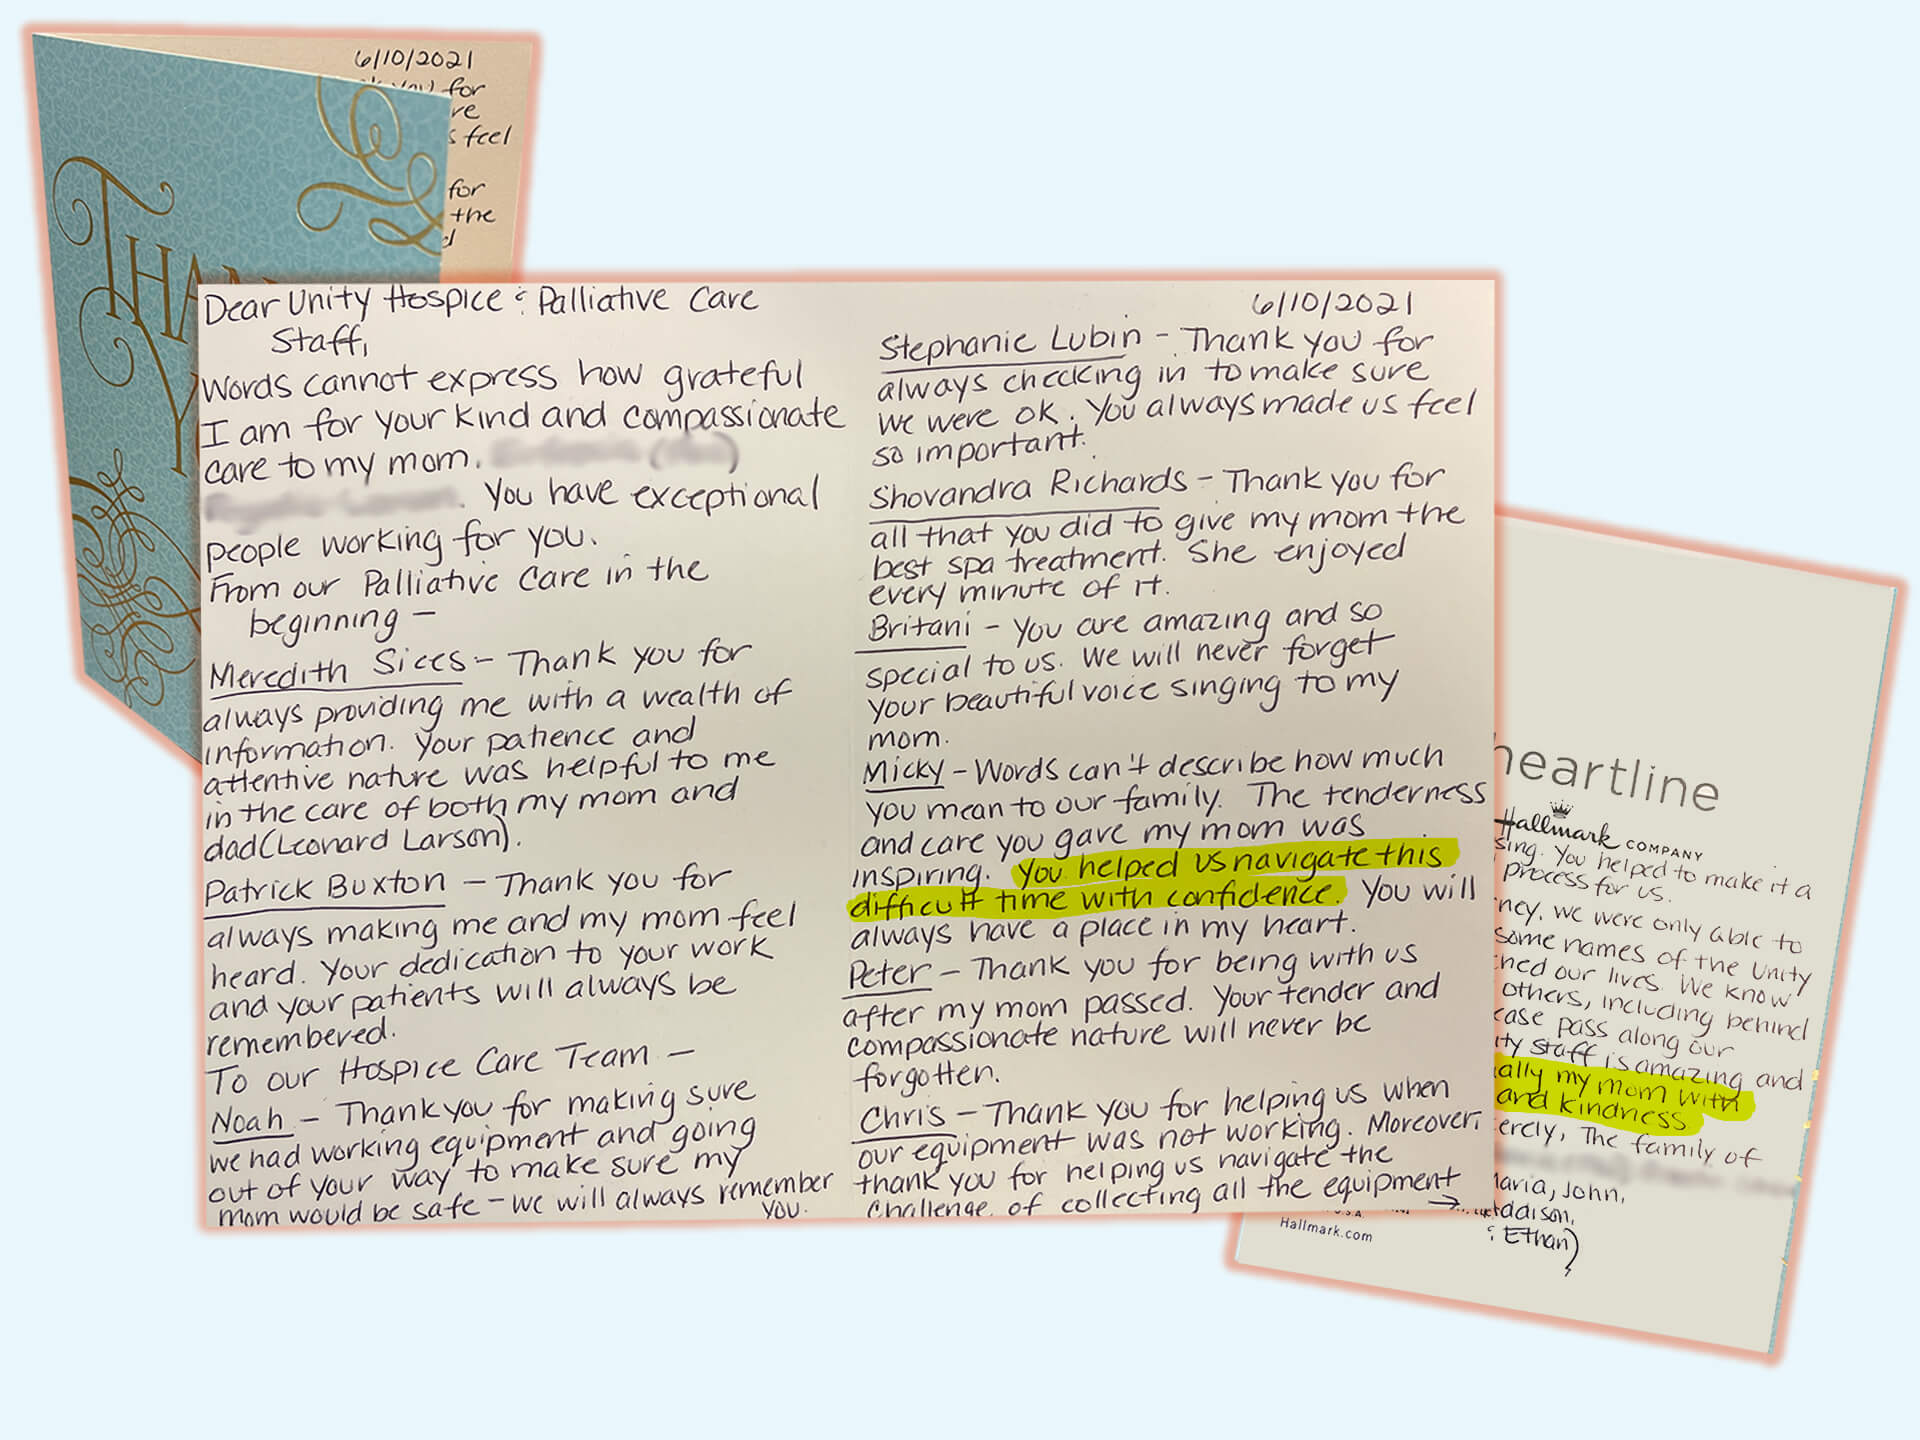 6/10/2021
you for
re
s feel
for
the
d
THAN
Y
Dear Unity Hospice & Palliative Care
Staff,
Words cannot express how grateful
I am for your kind and compassionate
care to my mom.
You have exceptional
people working for you.
From our Palliative Care in the
beginning –
Meredith Sices – Thank you for
always providing me with a wealth of
information. Your patience and
attentive nature was helpful to me
in the care of both my mom and
dad (Leonard Larson).
Patrick Buxton – Thank you for
always making me and my mom feel
heard. Your dedication to your work
and your patients will always be
remembered.
To our Hospice Care Team –
Noah – Thank you for making sure
we had working equipment and going
out of your way to make sure my
mom would be safe – we will always remember
you.
6/10/2021
Stephanie Lubin – Thank you for
always checking in to make sure
we were ok. You always made us feel
so important.
Shovandra Richards – Thank you for
all that you did to give my mom the
best spa treatment. She enjoyed
every minute of it.
Britani – You are amazing and so
special to us. We will never forget
your beautiful voice singing to my
mom.
Micky – Words can't describe how much
you mean to our family. The tenderness
and care you gave my mom was
inspiring. You helped us navigate this
difficult time with confidence. You will
always have a place in my heart.
Peter – Thank you for being with us
after my mom passed. Your tender and
compassionate nature will never be
forgotten.
Chris – Thank you for helping us when
our equipment was not working. Moreover,
thank you for helping us navigate the
challenge of collecting all the equipment →
heartline
Hallmark COMPANY
sing. You helped to make it a
process for us.
ney, we were only able to
some names of the Unity
ched our lives. We know
others, including behind
ease pass along our
ity staff is amazing and
ally my mom with
and kindness
erely, The family of
Maria, John,
Addison,
& Ethan)
U.S.A.
Hallmark.com